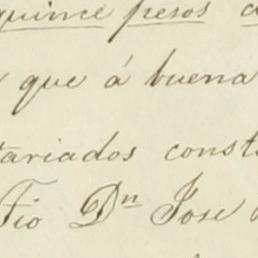 quince pesos
que á buena
tariados const
Tio Dn Jose